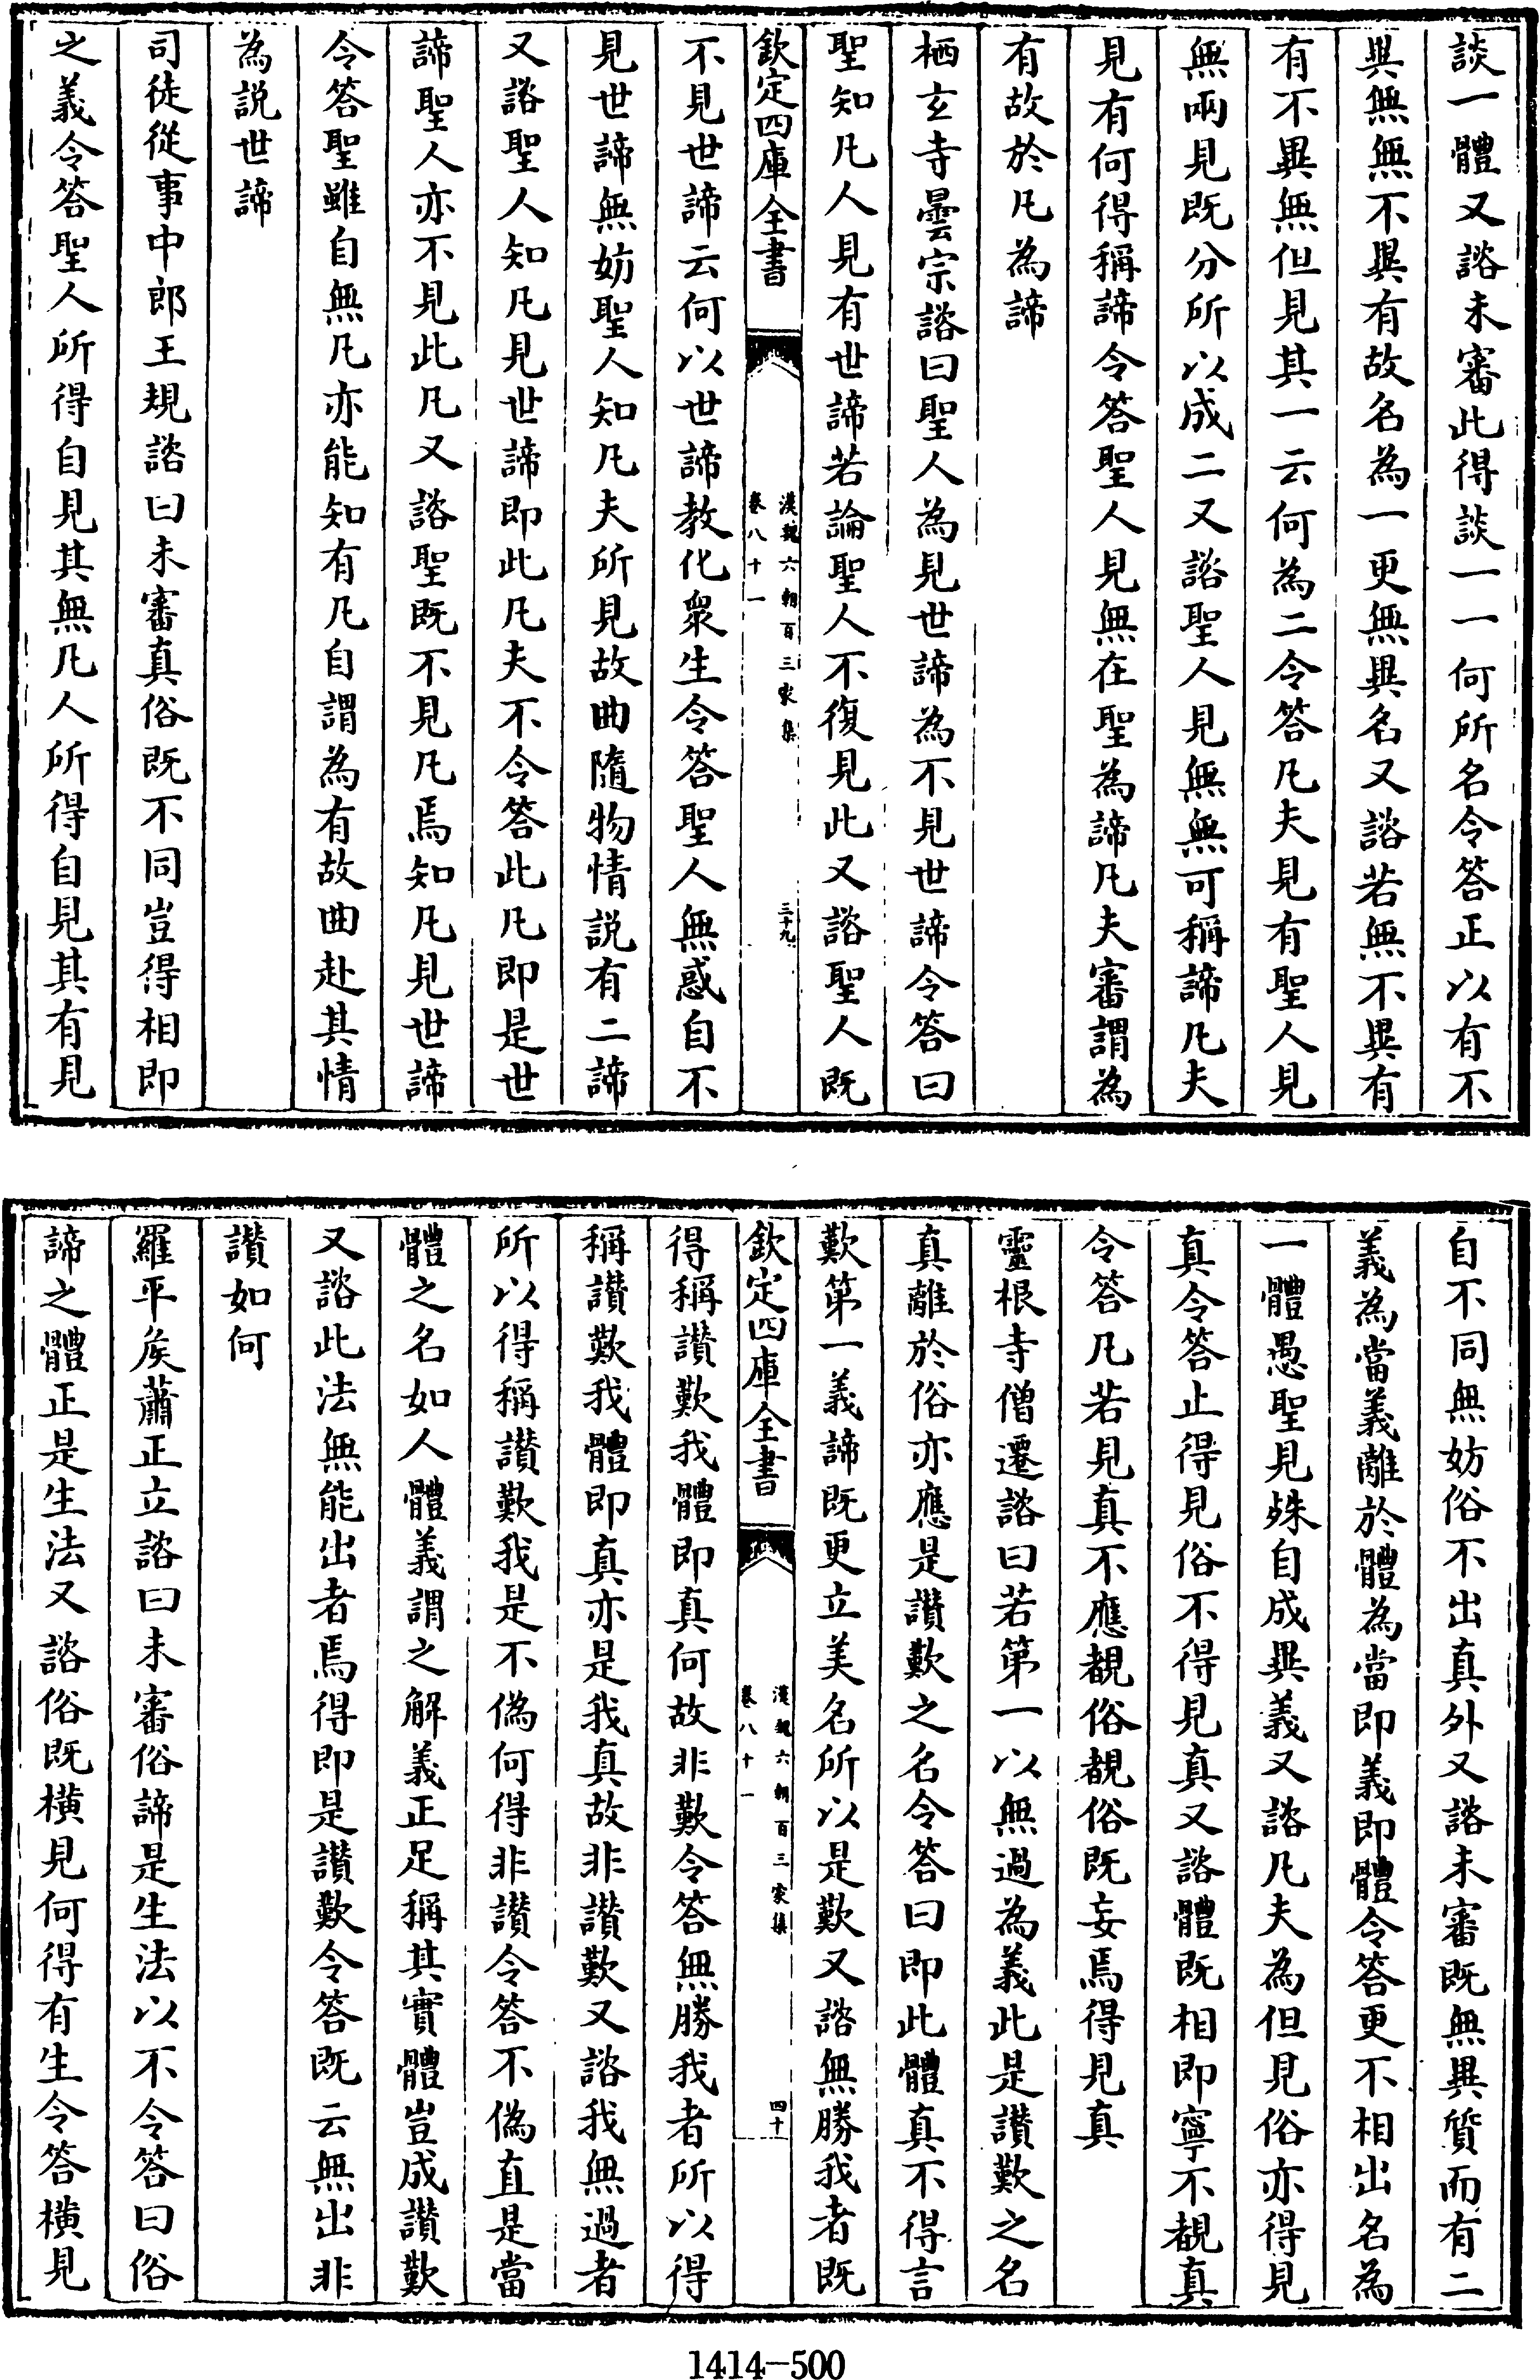 談一體又諮未審此得談一一何所名令答正以有不
異無無不異有故名為一更無異名又諮若無不異有
有不異無但見其一云何為二令答凡夫見有聖人見
無兩見既分所以成二又諮聖人見無無可稱諦凡夫
見有何得稱諦令答聖人見無在聖為諦凡夫審謂為
有故於凡為諦
栖玄寺曇宗諮曰聖人為見世諦為不見世諦令答曰
聖知凡人見有世諦若論聖人不復見此又諮聖人既
欽定四庫全書
漢魏六朝百三家集
卷八十一
三十九
不見世諦云何以世諦教化衆生令答聖人無惑自不
見世諦無妨聖人知凡夫所見故曲隨物情説有二諦
又諮聖人知凡見世諦即此凡夫不令答此凡即是世
諦聖人亦不見此凡又諮聖既不見凡焉知凡見世諦
令答聖雖自無凡亦能知有凡自謂為有故曲赴其情
為説世諦
司徒從事中郎王規諮曰未審真俗既不同豈得相即
之義令答聖人所得自見其無凡人所得自見其有見
自不同無妨俗不出真外又諮未審既無異質而有二
義為當義離於體為當即義即體令答更不相出名為
一體愚聖見殊自成異義又諮凡夫為但見俗亦得見
真令答止得見俗不得見真又諮體既相即寧不覩真
令答凡若見真不應覩俗覩俗既妄焉得見真
靈根寺僧遷諮曰若第一以無過為義此是讃歎之名
真離於俗亦應是讃歎之名令答曰即此體真不得言
歎第一義諦既更立美名所以是歎又諮無勝我者既
欽定四庫全書
漢魏六朝百三家集
卷八十一
四十
得稱讃歎我體即真何故非歎令答無勝我者所以得
稱讃歎我體即真亦是我真故非讃歎又諮我無過者
所以得稱讃歎我是不偽何得非讃令答不偽直是當
體之名如人體義謂之解義正足稱其實體豈成讃歎
又諮此法無能出者焉得即是讃歎令答既云無出非
讃如何
羅平矦蕭正立諮曰未審俗諦是生法以不令答曰俗
諦之體正是生法又諮俗既横見何得有生令答横見
1414-500